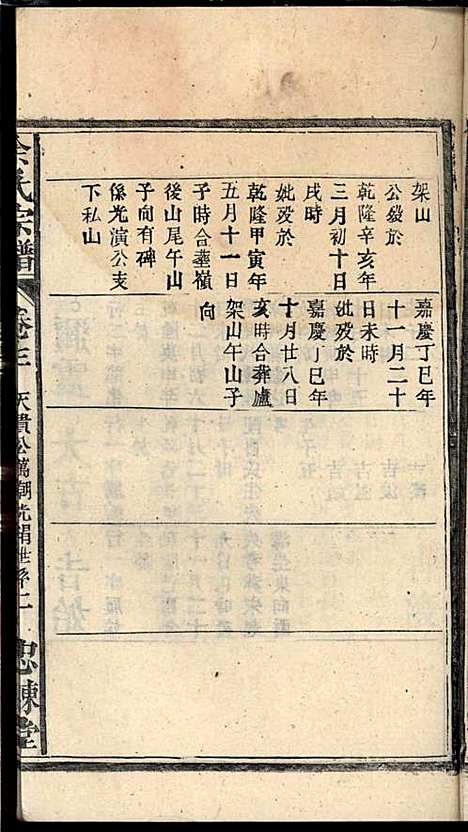 架山
公歿於
乾隆辛亥年
三月初十日
戌時
妣歿於
乾隆甲寅年
五月十一日
子時合塟嶺
後山尾午山
子向有碑
係光演公支
下私山
嘉慶丁巳年
十一月二十
日未時
妣歿於
嘉慶丁巳年
十月廿八日
亥時合葬廬
架山午山子
向
余氏宗譜
卷三
天貴公萬潮光絹世系二
忠諫堂